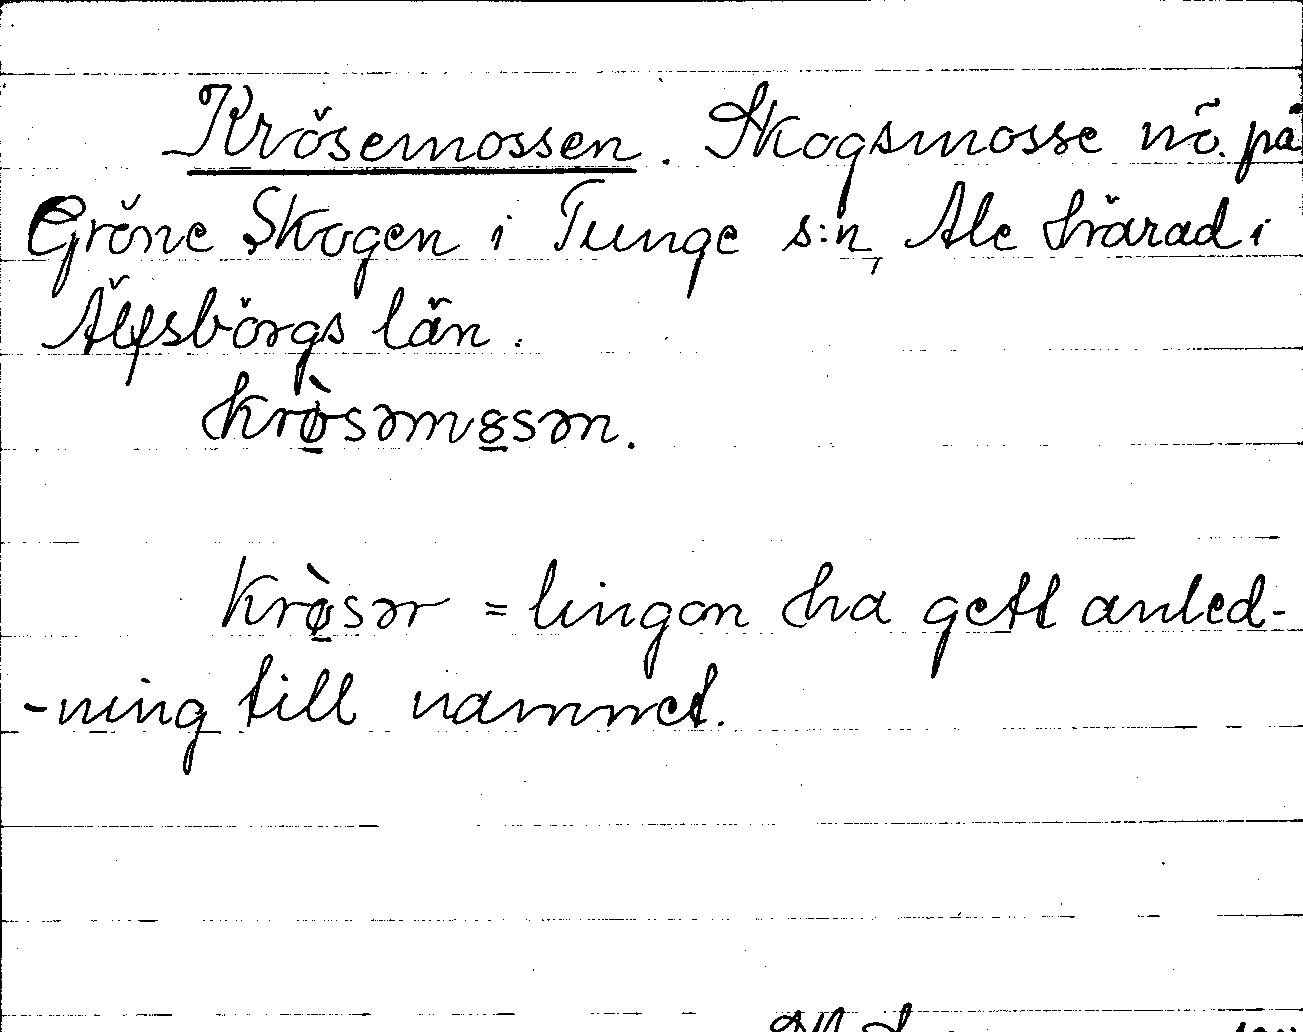 Krösemossen. Skogsmosse nö. på
Gröne Skogen i Tunge s:n, Ale härad i
Älfsborgs län.
krø̀səmɞsən.
krø̀sər = lingon ha gett anled-
-ning till namnet.